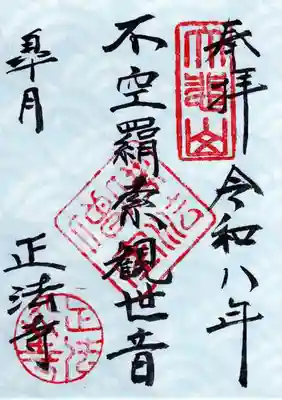 奉拝 令和八年
不空羂索観世音
皐月
正法寺